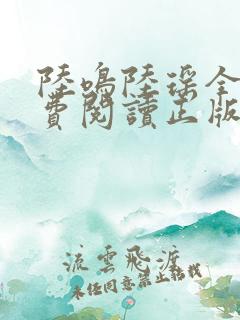 陸鳴陸瑶全
費閱讀正版
流雲飛渡
未經同意禁止轉載